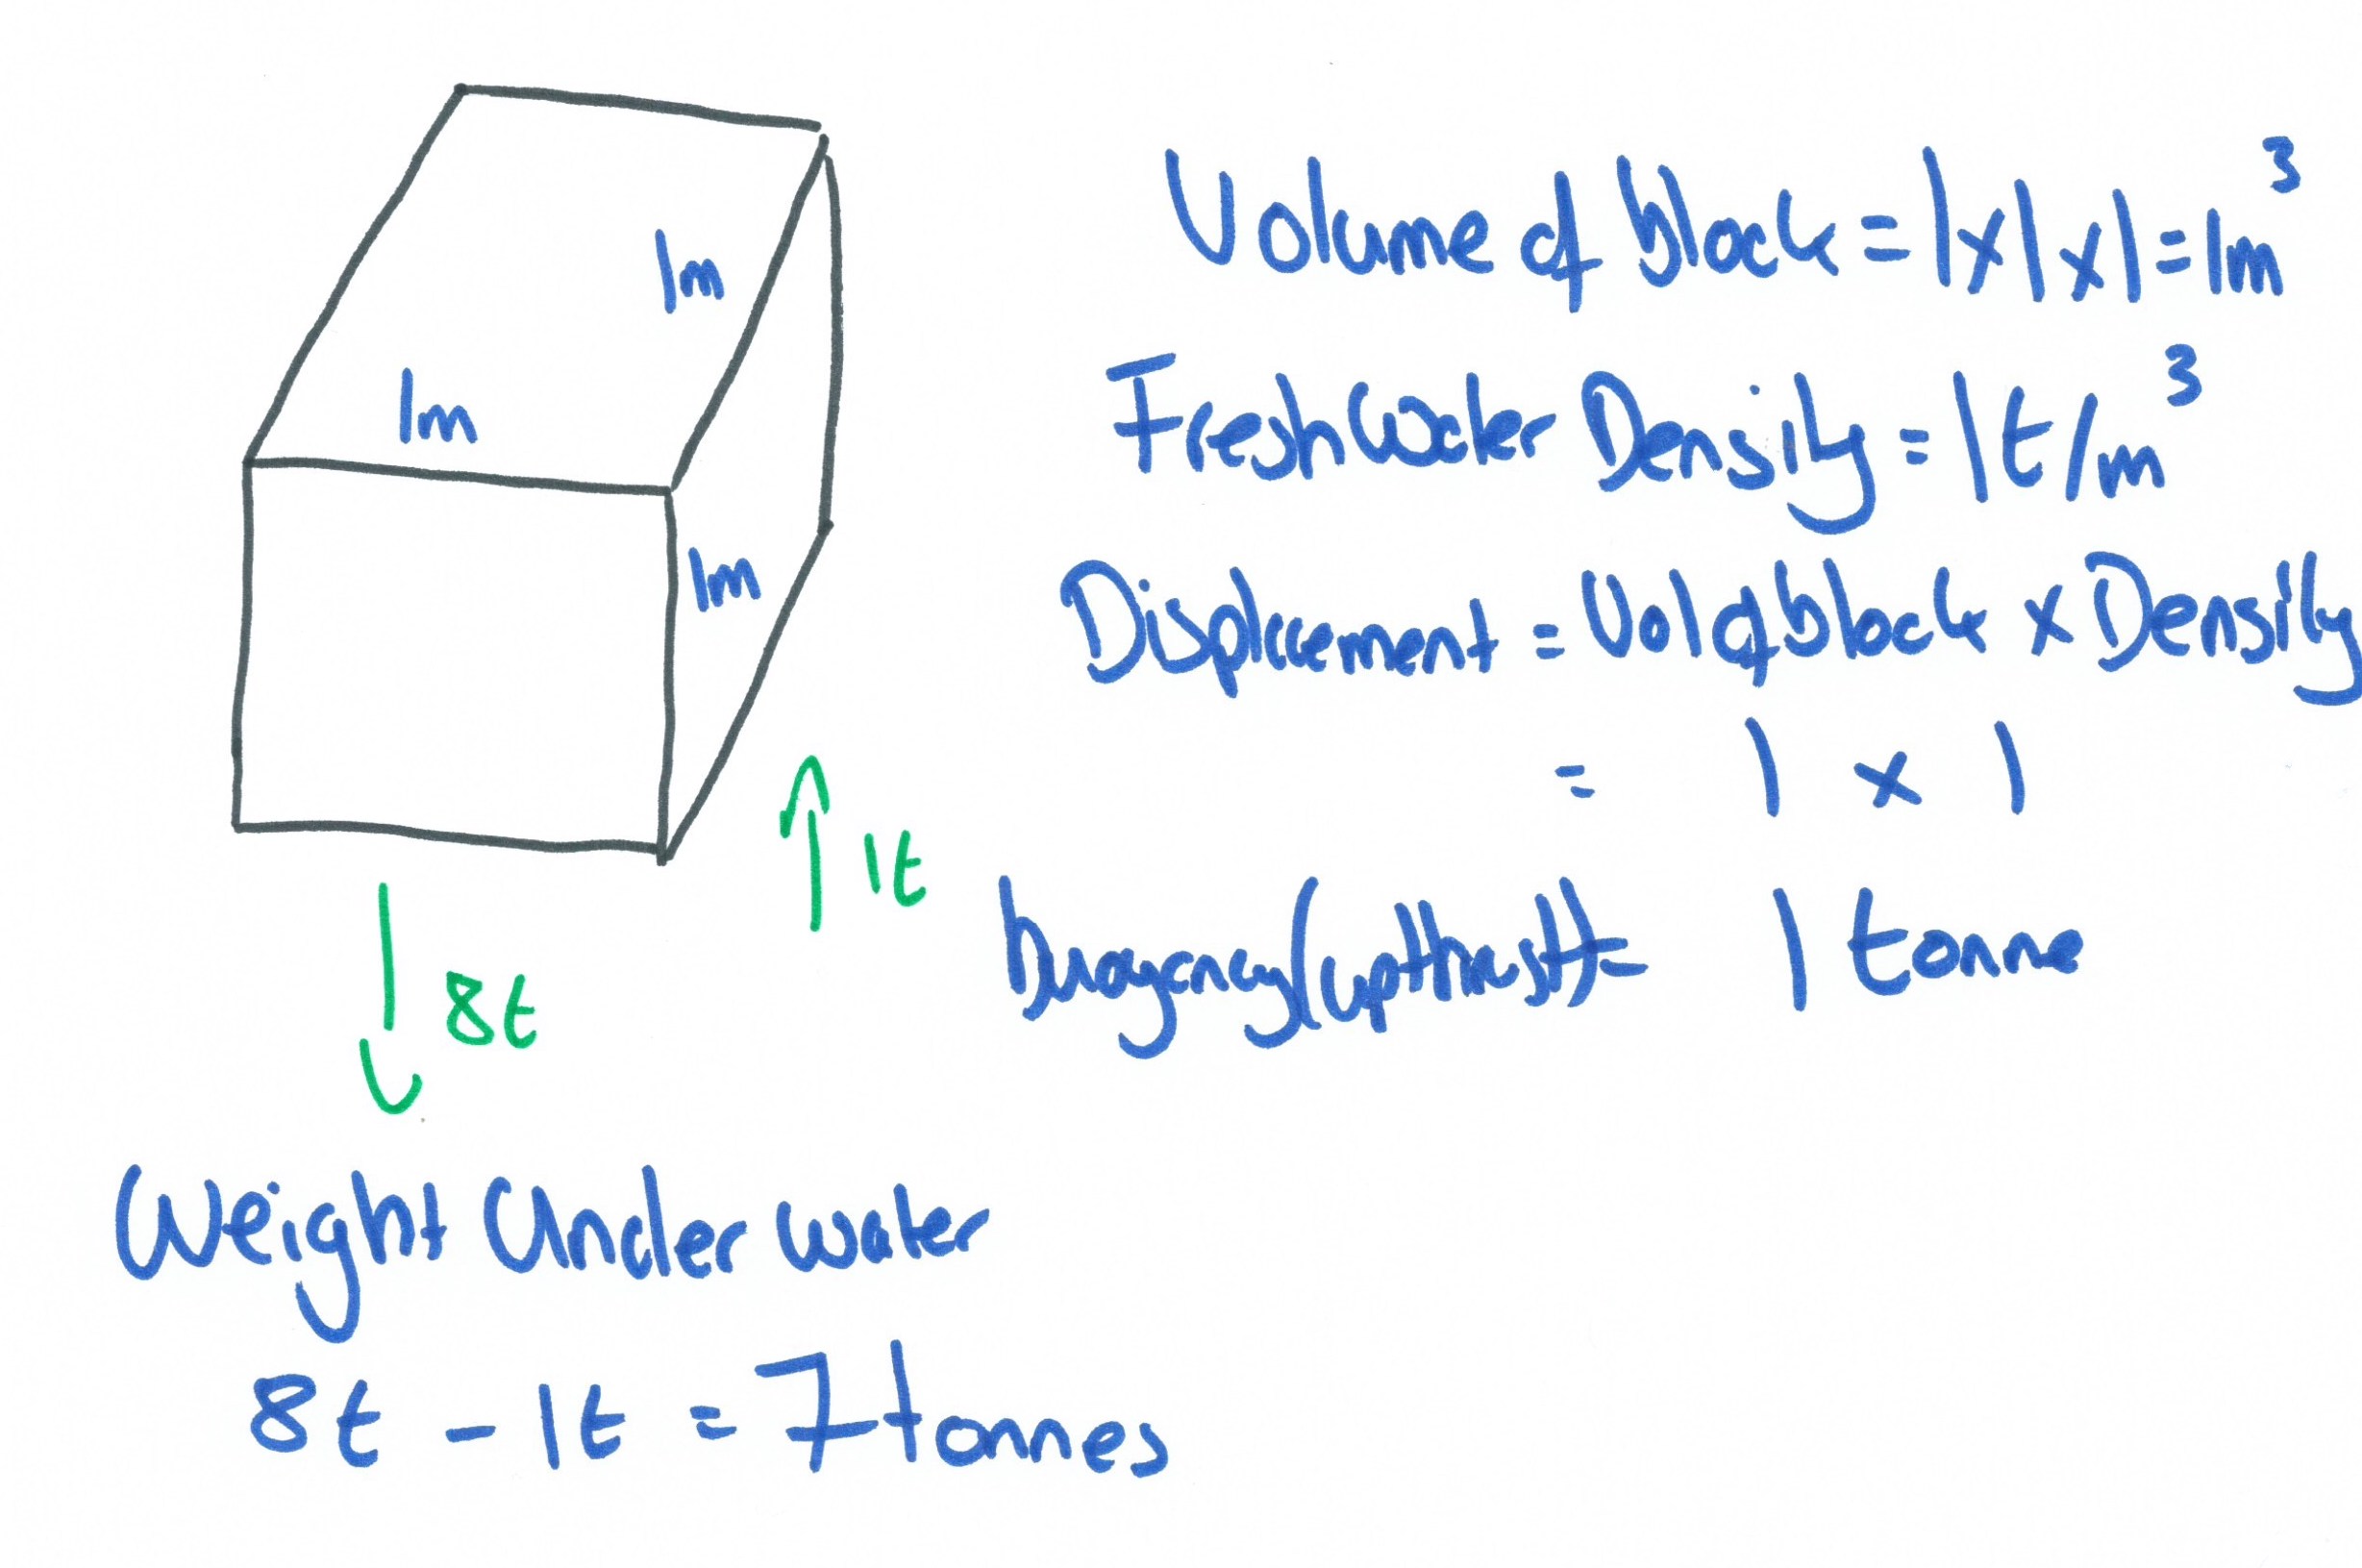 Volume of block = 1x1x1 = 1m³
1m
Fresh Water Density = 1t/m³
1m
1m
Displacement = Vol of block x Density
= 1 x 1
1t
buoyancy (upthrust) = 1 tonne
8t
Weight Under water
8t - 1t = 7 tonnes